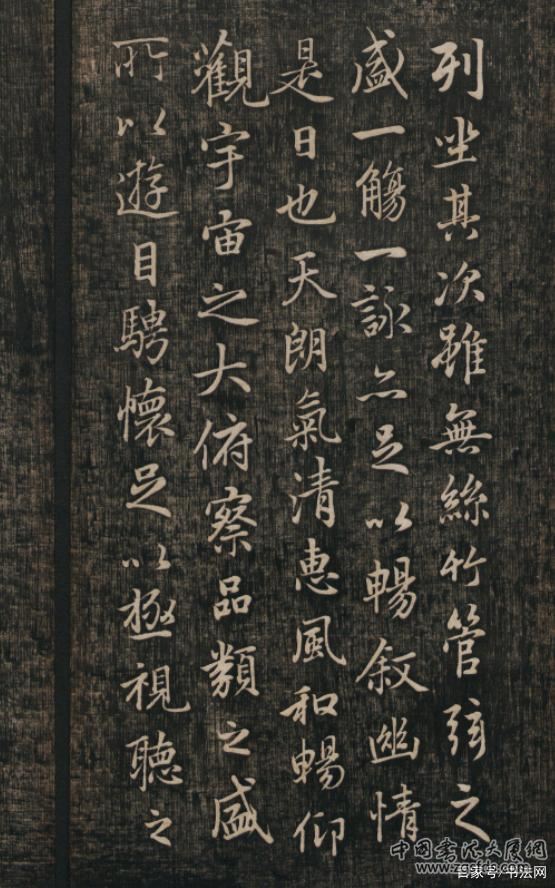 列坐其次雖無絲竹管弦之
盛一觴一詠亦足以暢叙幽情
是日也天朗氣清惠風和暢仰
觀宇宙之大俯察品類之盛
所以遊目騁懷足以極視聽之
中国书法大厦网
www.zgsfds.com
百家号/书法网